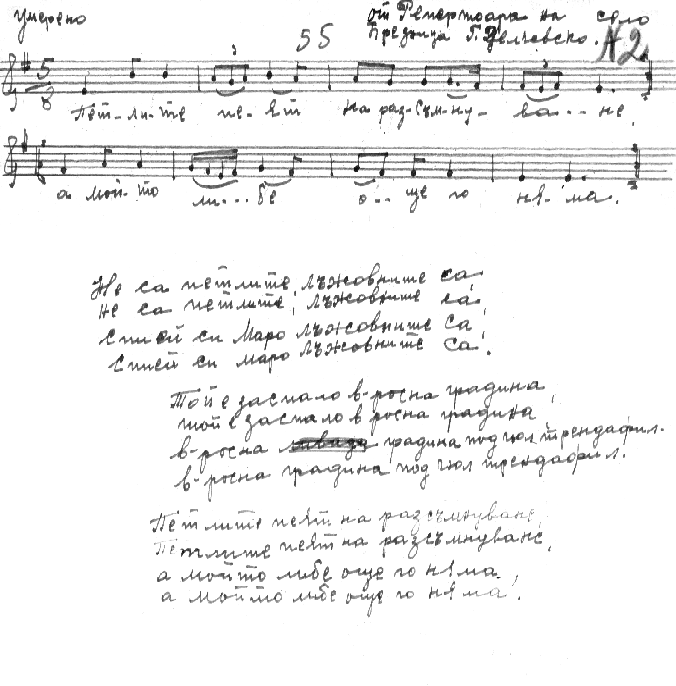 умерено
55
от Репертоара на село
Предница Г. Делчевско.
№2
5
8
3
3
Пет-ли-те пе-ят на раз-съм-ну-ва--не,
а мой-то ли...бе о--ще го ня-ма.
Не са петлите, лъжовните са,
не са петлите, лъжовните са,
спией си Маро лъжовните са,
спией си маро лъжовните са.
Той е заспало в-росна градина,
той е заспало в росна градина
в-росна градина под гюл трендафил.
в-росна градина под гюл трендафил.
Петлите пеят на разсъмнуване,
Петлите пеят на разсъмнуване,
а мойто либе още го няма,
а мойто либе още го няма!